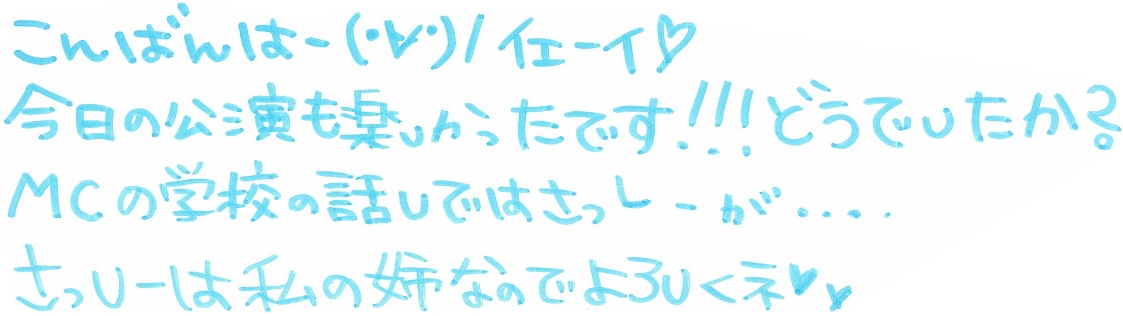 こんばんはー(・∀・)/イェーイ♡
今日の公演も楽しかったです!!!どうでしたか?
MCの学校の話しではさっしーが‥‥
さっしーは私の姉なのでよろしくネ♥♥